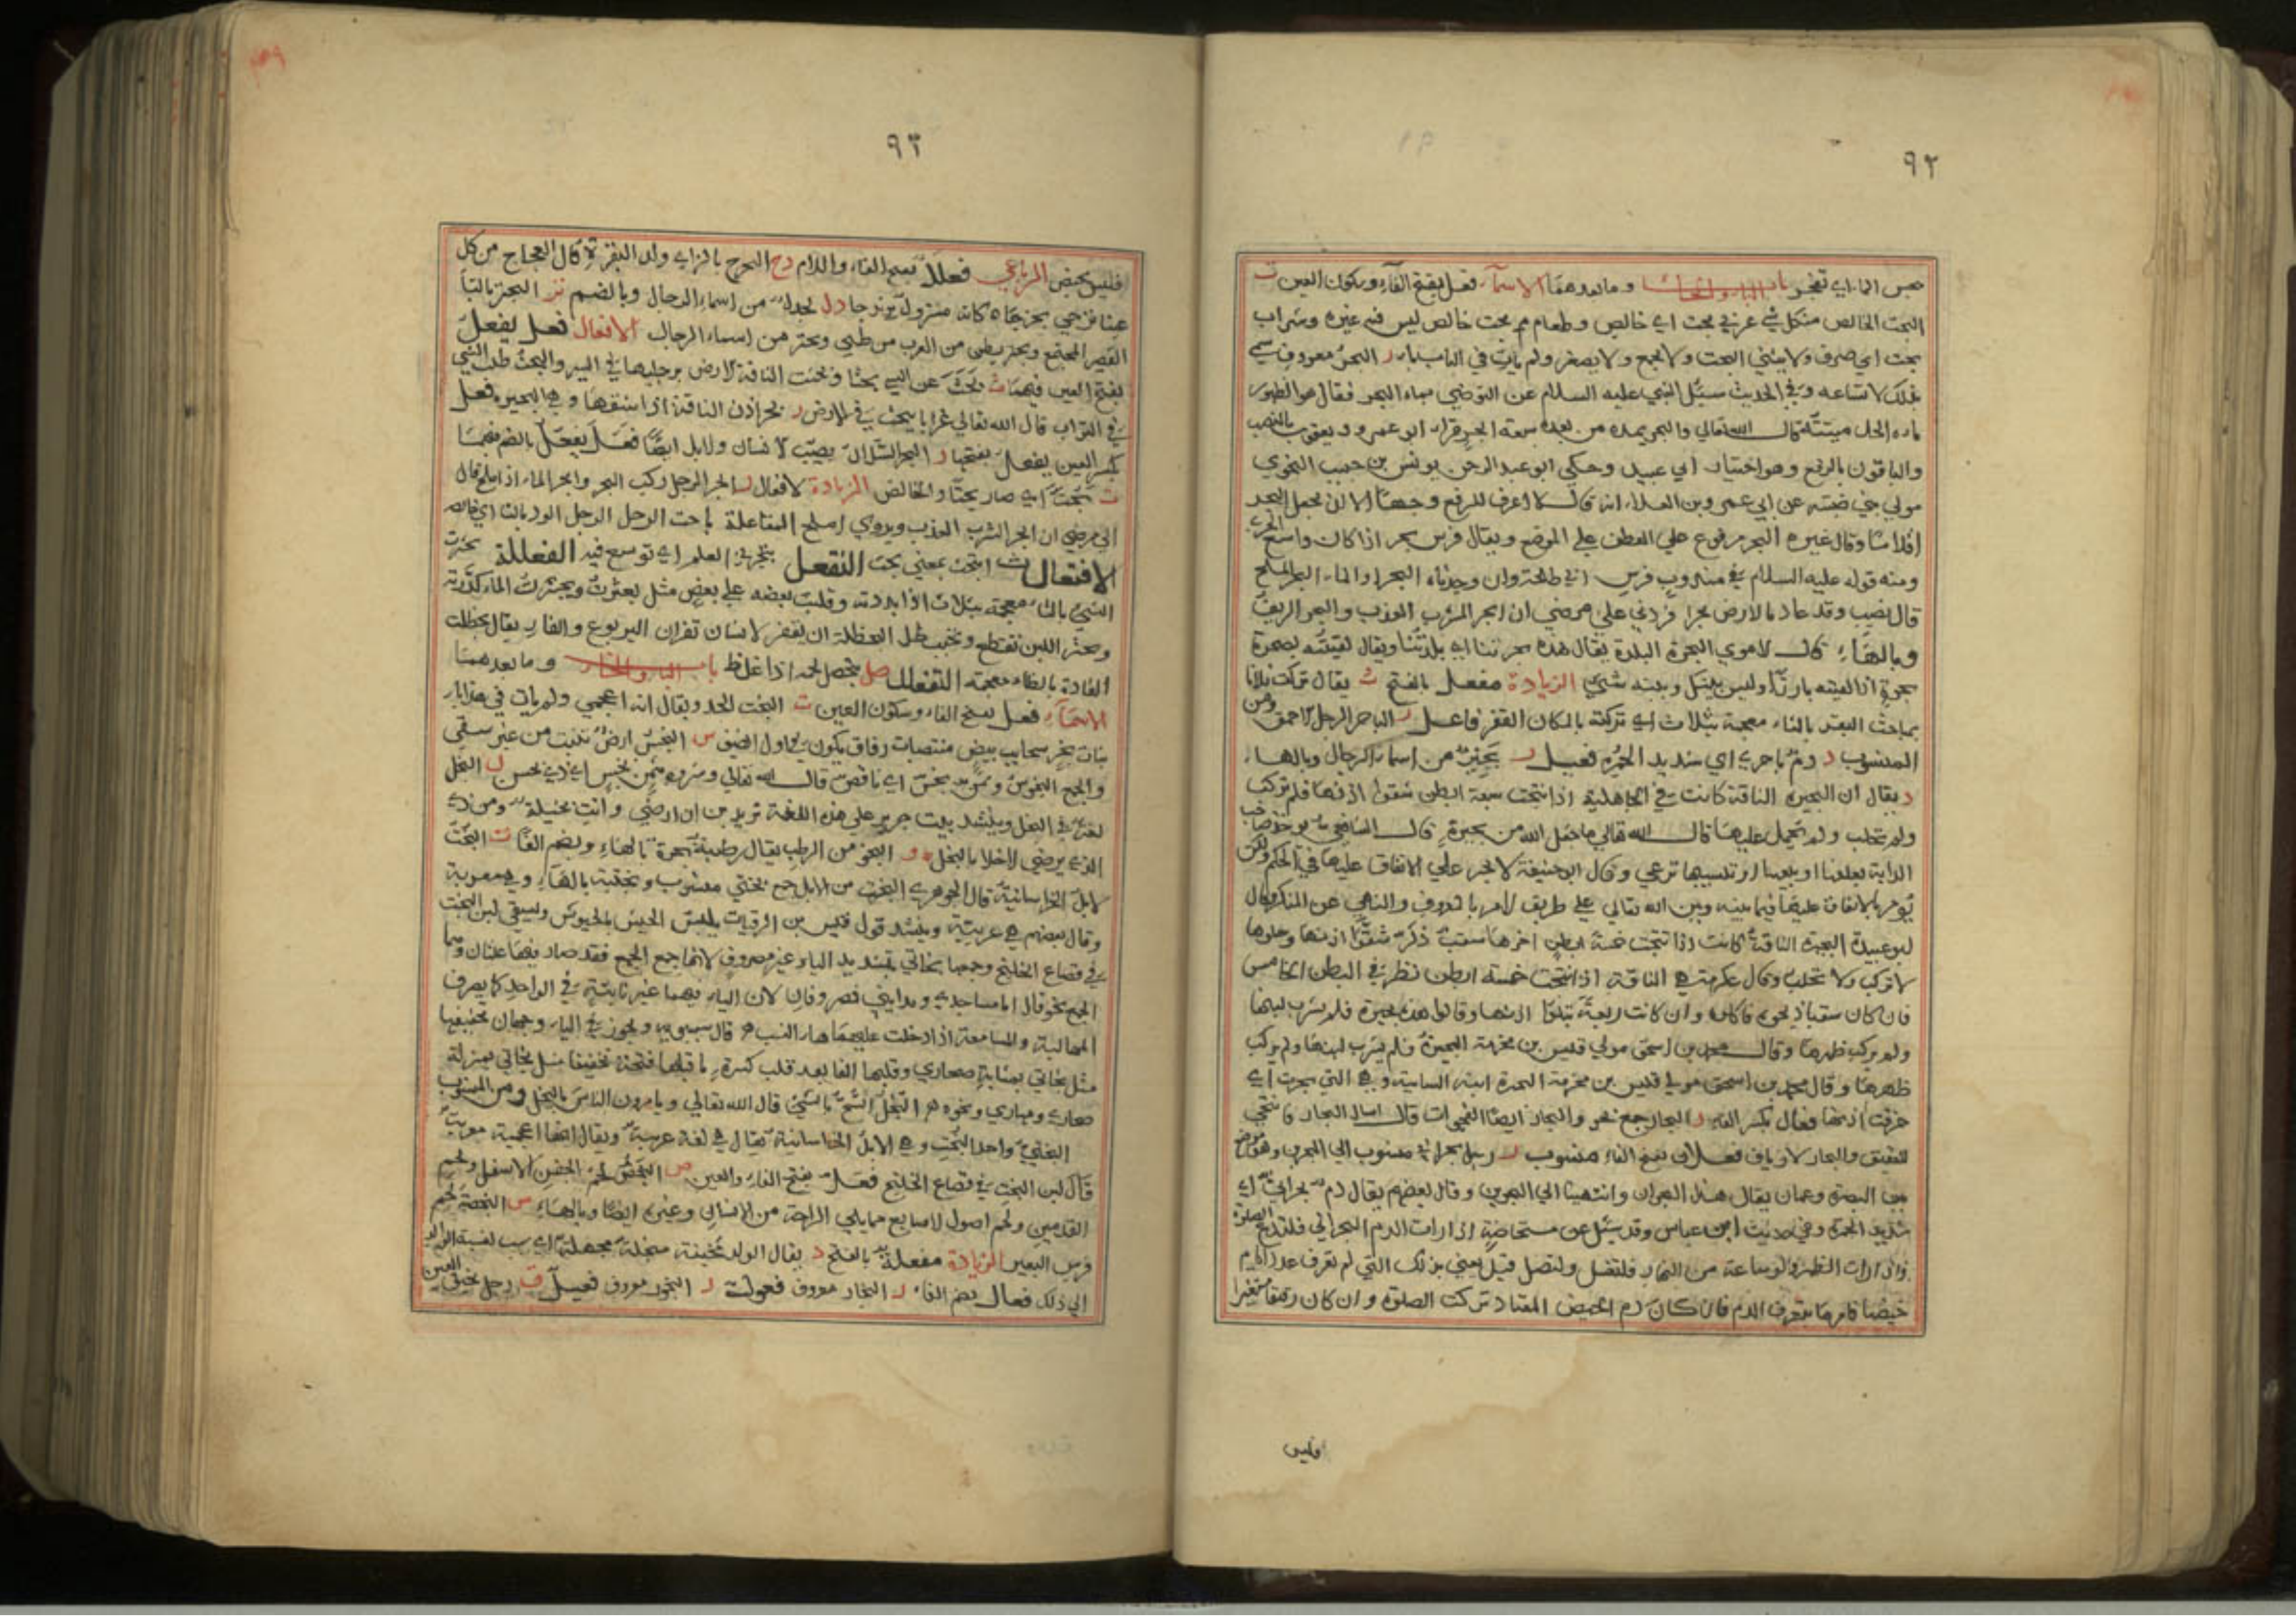 ٩٢
حبس الماء اي تفجر باب الباء والحاء وما بعدهما الاسماء فعل بفتح الفاء وسكون العين ت
البحت الخالص من كل شي عربي بحت اي خالص وطعام بحت خالص ليس فيه غيره وشراب
بحت اي صرف ولا يثني البحت ولا يجمع ولا يصغر ولم يات في الباب باء ر البحر معروف سمي
بذلك لاتساعه وفي الحديث سئل النبي عليه السلام عن التوضي بماء البحر فقال هو الطهور
ماءه الحل ميتته قال الله تعالي والبحر يمده من بعده سبعة ابحر قراء ابو عمرو ويعقوب بالنصب
والباقون بالرفع وهو اختيار ابي عبيد وحكي ابو عبد الرحمن يونس بن حبيب النحوي
مولي بني ضبته عن ابي عمرو بن العلاء انه قال لا اعرف للرفع وجها الا ان يجعل البحر
اقلاما وقال غيره البحر مرفوع علي العطف علي الموضع ويقال فرس بحر اذا كان واسع الجري
ومنه قوله عليه السلام في مندوب فرس ابي طلحة وان وجدناه البحرا والماء البحر الملح
قال نصيب وقد عاد ماء الارض بحرا فزدني علي مرضي ان ابحر المشرب العذب والبحر الريف
وبالهاء قال الاموي البحرة البلدة يقال هذه بحرتنا اي بلدتنا ويقال لقيته بصحرة
بحرة اذا لقيته بارزا وليس بينك وبينه شي الزيادة مفعل بالفتح ث يقال تركت فلانا
بمباحث البقر بالثاء معجمة بثلاث اي تركته بالمكان القفر فاعل ر الباحر الرجل الاحمق ومن
المنسوب ر دم باحري اي شديد الحمرة فعيل ر بحير من اسماء الرجال وبالهاء
ر يقال ان البحيرة الناقة كانت في الجاهلية اذا نتجت سبعة ابطن شقوا اذنها فلم تركب
ولم تحلب ولم يحمل عليها قال الله تعالي ما جعل الله من بحيرة قال الشافعي يؤخذ صاحب
الدابة بعلفها او بيعها او تسييبها ترعي وقال ابو حنيفة لا يجبر علي الانفاق عليها في الحكم ولكن
يؤمر بالانفاق عليها فيما بينه وبين الله تعالي علي طريق الامر بالمعروف والنهي عن المنكر وقال
ابو عبيدة البحيرة الناقة كانت اذا نتجت خمسة ابطن اخرها سقب ذكر شقوا اذنها وخلوها
لا تركب ولا تحلب وقال عكرمة هي الناقة اذا نتجت خمسة ابطن نظر في البطن الخامس
فان كان سقبا ذبحوه فاكلوه وان كانت ربعة بتكوا اذنها وقالوا هذه بحيرة فلم يشرب لبنها
ولم يركب ظهرها وقال محمد بن اسحق مولي قيس بن مخرمة البحيرة فلم يشرب لبنها ولم يركب
ظهرها وقال محمد بن اسحق مولي قيس بن مخرمة البحيرة ابنة السايبة وهي التي بحرت اي
خرقت اذنها فعال بكسر الفاء ر البحار جمع بحر والبحار ايضا الفجوات قال اسال البحار فانتحي
للعقيق والبحار الارياف فعلان بفتح الفاء منسوب ر رجل بحراني منسوب الي البحرين وهو موضع
بين البصرة وعمان يقال هذه البحران وانتهينا الي البحرين وقال بعضهم يقال دم بحراني اي
شديد الحمرة وفي حديث ابن عباس وقد سئل عن مستحاضة اذا رات الدم البحراني فلتدع الصلوة
واذا رات الطهر ولو ساعة من النهار فلتغتسل ولتصل قيل يعني بذلك التي لم تعرف عدد ايام
حيضها فامرها بتعرف الدم فان كان دم الحيض المعتاد تركت الصلوة وان كان رقيقا متغيرا
فليس
٩٣
فليس بحيض الرباعي فعلل بفتح الفاء واللام زج البحزج بالزاي ولد البقرة قال العجاج من كل
عيناء تزجي بحزجا كانه مسرول يرندجا دل بحدل من اسماء الرجال وبالضم تر البحتر بالتاء
القصير المجتمع وبحتر بطن من العرب من طيي وبحتر من اسماء الرجال الافعال فعل يفعل
بفتح العين فيهما ث بحث عن الشي بحثا وبحثت الناقة الارض برجليها في السير والبحث طلب الشي
في التراب قال الله تعالي غرابا يبحث في الارض ر بحر اذن الناقة اذا شقها وهي البحيرة فعل
بكسر العين يفعل بفتحها ر البحر السلال يصيب الانسان والابل ايضا فعل يفعل بالضم فيهما
ت بحت اي صار بحتا والخالص الزيادة الافعال ر ابحر الرجل ركب البحر وابحر الماء اذا ملح قال
الي مرضي ان ابحر المشرب العذب ويروي املح المفاعلة باحت الرجل الرجل الود بالتاء اي خالصه
الافتعال ث ابتحث بمعني بحث التفعل تبحر في العلم اي توسع فيه الفعللة بحثرت
الشي بالثاء معجمة بثلاث اذا بددته وقلبت بعضه علي بعض مثل بعثرت وبحثرت الماء كدرته
وبحثر اللبن تقطع وتحبب ظل البحظلة ان يقفز الانسان قفزان اليربوع والفار يقال بحظلت
الفارة بالظاء معجمة التفعلل صل تبخصل لحمه اذا غلظ باب الباء والخاء وما بعدهما
الاسماء فعل بفتح الفاء وسكون العين ت البخت الحد ويقال انه اعجمي ولم يات في هذا باء ر
بنات بخر سحايب بيض منتصبات رقاق يكون في اول الصيف س البخس ارض تنبت من غير سقي
والجمع البخوس وثمن بخس اي ناقص قال الله تعالي وشروه بثمن بخس اي ذي بخس ل البخل
لغة في البخل وينشد بيت جرير علي هذه اللغة تريدين ان ارضي وانت بخيلة ومن ذا
الذي يرضي الاخلاء بالبخل البخو من الرطب يقال رطبة بخوة بالهاء وبضم الفاء ت البخت
الابل الخراسانية قال الجوهري البخت من الابل جمع بختي منسوب وبختية بالهاء وهي معربة
وقال بعضهم هي عربية وينشد قول قيس بن الرقيات يلبس الجيش بالجيوش ويسقي لبن البخت
في قصاع الخلنج وجمعها بخاتي بتشديد الياء غير مصروف لانها جمع الجمع فقد صار فيها علتان وهما
الجمع نحو قال اما مساجدي ومدايني فمصروفان لان الياء فيهما غير ثابتة في الواحد كما يصرف
المهالبة والمسامعة اذا ادخلت عليهما هاء النسب قال سيبويه ويجوز في الياء وجهان تخفيفها
مثل بخاتي بمثابة صحاري وقلبها الفا بعد قلب كسرة ما قبلها فتحة تخفيفا مثل بخاتي بمنزلة
صحاري ومهاري ونحوه البخل الشح بالشي قال الله تعالي ويامرون الناس بالبخل ومن المنسوب
البختي واحد البخت وهي الابل الخراسانية يقال هي لغة عربية ويقال انها اعجمية معربة
قال لبن البخت في قصاع الخلنج فعل بفتح الفاء والعين ص البخص لحم الجفن الاسفل ولحم
القدمين ولحم اصول الاصابع مما يلي الراحة من الانسان وغيره ايضا وبالهاء ص البخصة لحم
فرس البعير الزيادة مفعلة بالفتح ر يقال الولد مجبنة مبخلة مجهلة اي سبب لنسبة الوالد
الي ذلك فعال بضم الفاء ر البخار معروف فعولة ر البخور معروف فعيل ق رجل بخيق العين